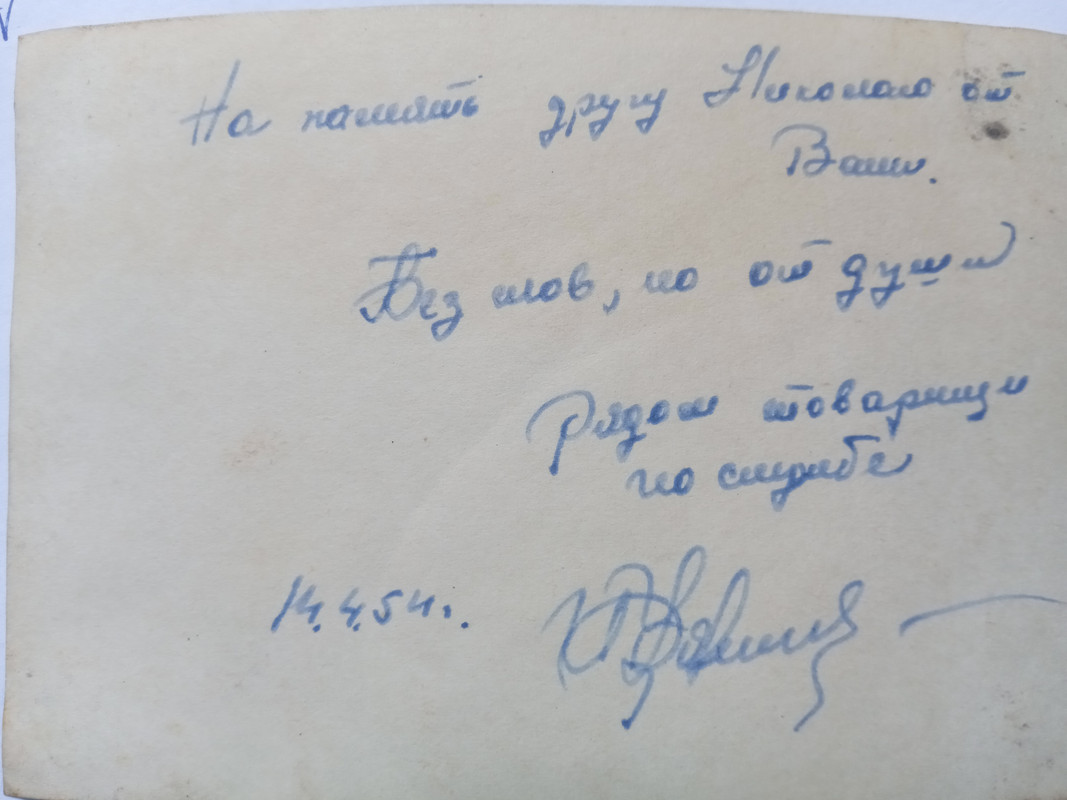 На память другу Николаю от
Васи.
Без слов, но от души
Рядом товарищи
по службе
14.4.54г.